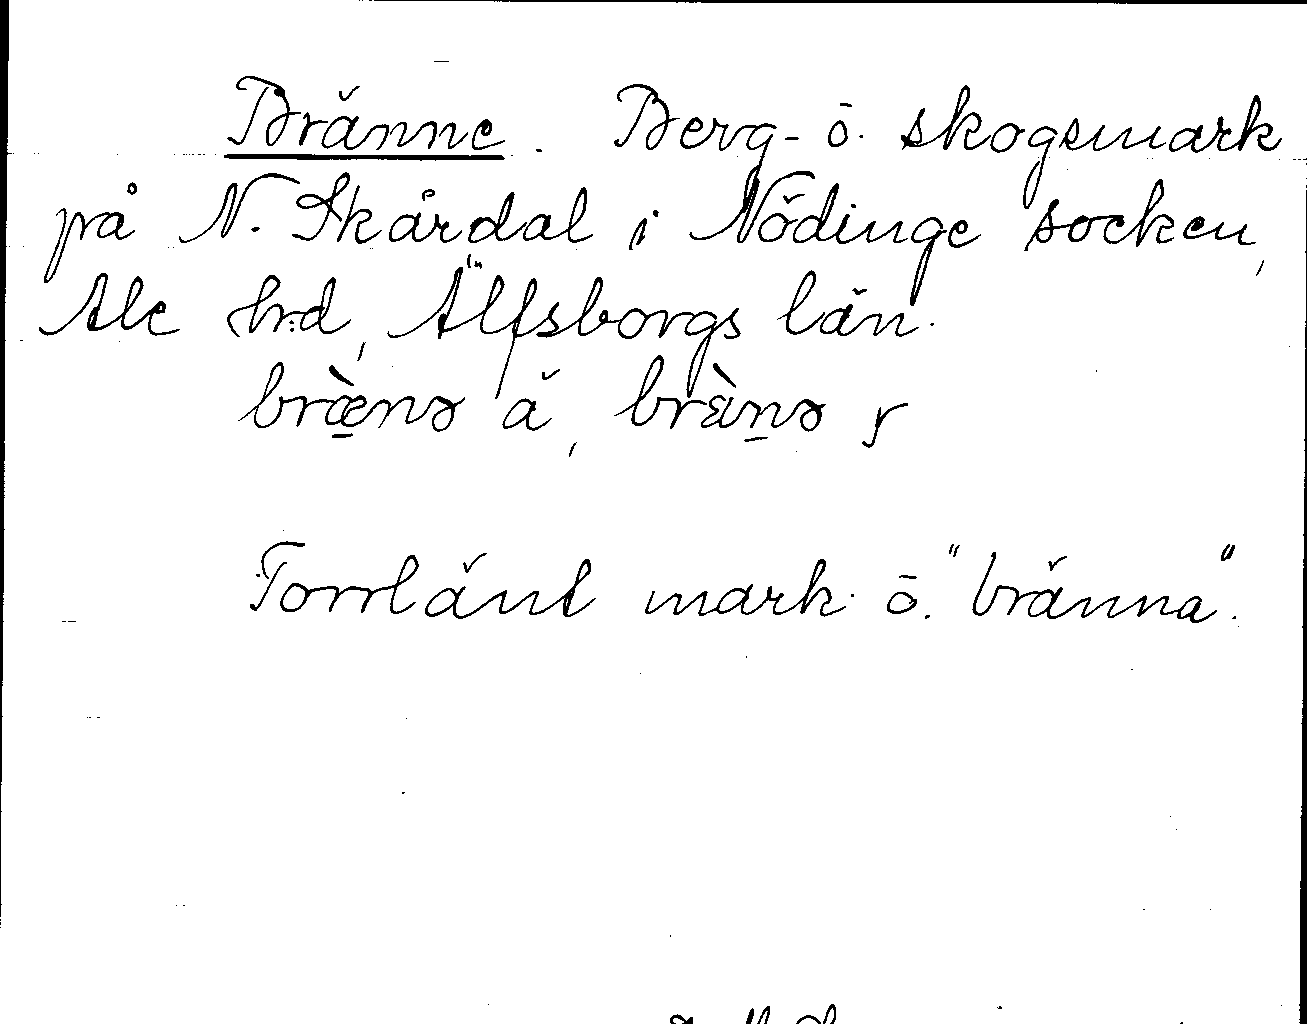 Bränne. Berg- o. skogsmark
på N. Skårdal i Nödinge socken,
Ale hrd, Älfsborgs län.
bræ̀nə ä, brɛ̀nə ɼ
Torrlänt mark o. "bränna".